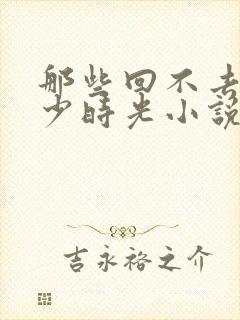 那些回不去
少時光小說
吉永裕之介